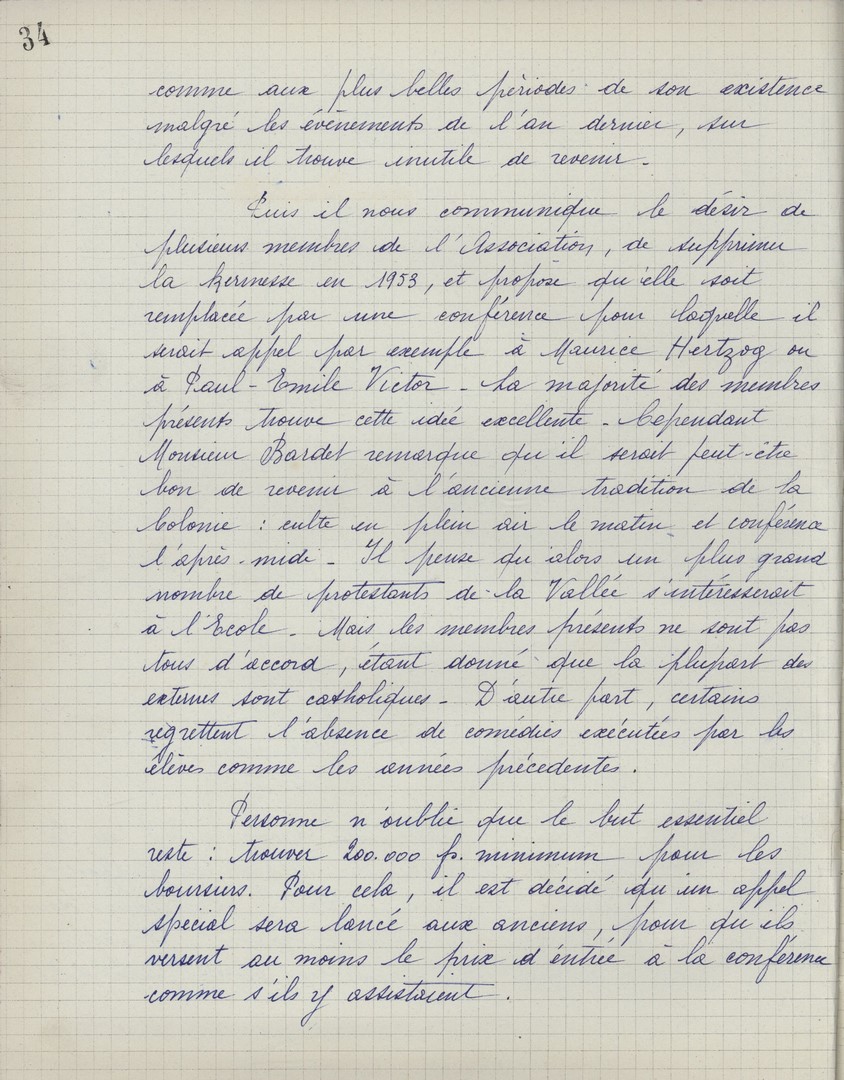 34
comme aux plus belles périodes de son existence
malgré les évènements de l'an dernier, sur
lesquels il trouve inutile de revenir.
Puis il nous communique le désir de
plusieurs membres de l'Association, de supprimer
la kermesse en 1953, et propose qu'elle soit
remplacée par une conférence pour laquelle il
serait appel par exemple à Maurice Hertzog ou
à Paul-Emile Victor - La majorité des membres
présents trouve cette idée excellente - Cependant
Monsieur Bardet remarque qu'il serait peut-être
bon de revenir à l'ancienne tradition de la
Colonie : culte en plein air le matin et conférence
l'après-midi - Il pense qu'alors un plus grand
nombre de protestants de la Vallée s'intéresserait
à l'Ecole - Mais les membres présents ne sont pas
tous d'accord, étant donné que la plupart des
externes sont catholiques - D'autre part, certains
regrettent l'absence de comédies exécutées par les
élèves comme les années précedentes.
Personne n'oublie que le but essentiel
reste : trouver 200.000 fr. minimum pour les
boursiers. Pour cela, il est décidé qu'un appel
spécial sera lancé aux anciens, pour qu'ils
versent au moins le prix d'entrée à la conférence
comme s'ils y assistaient.